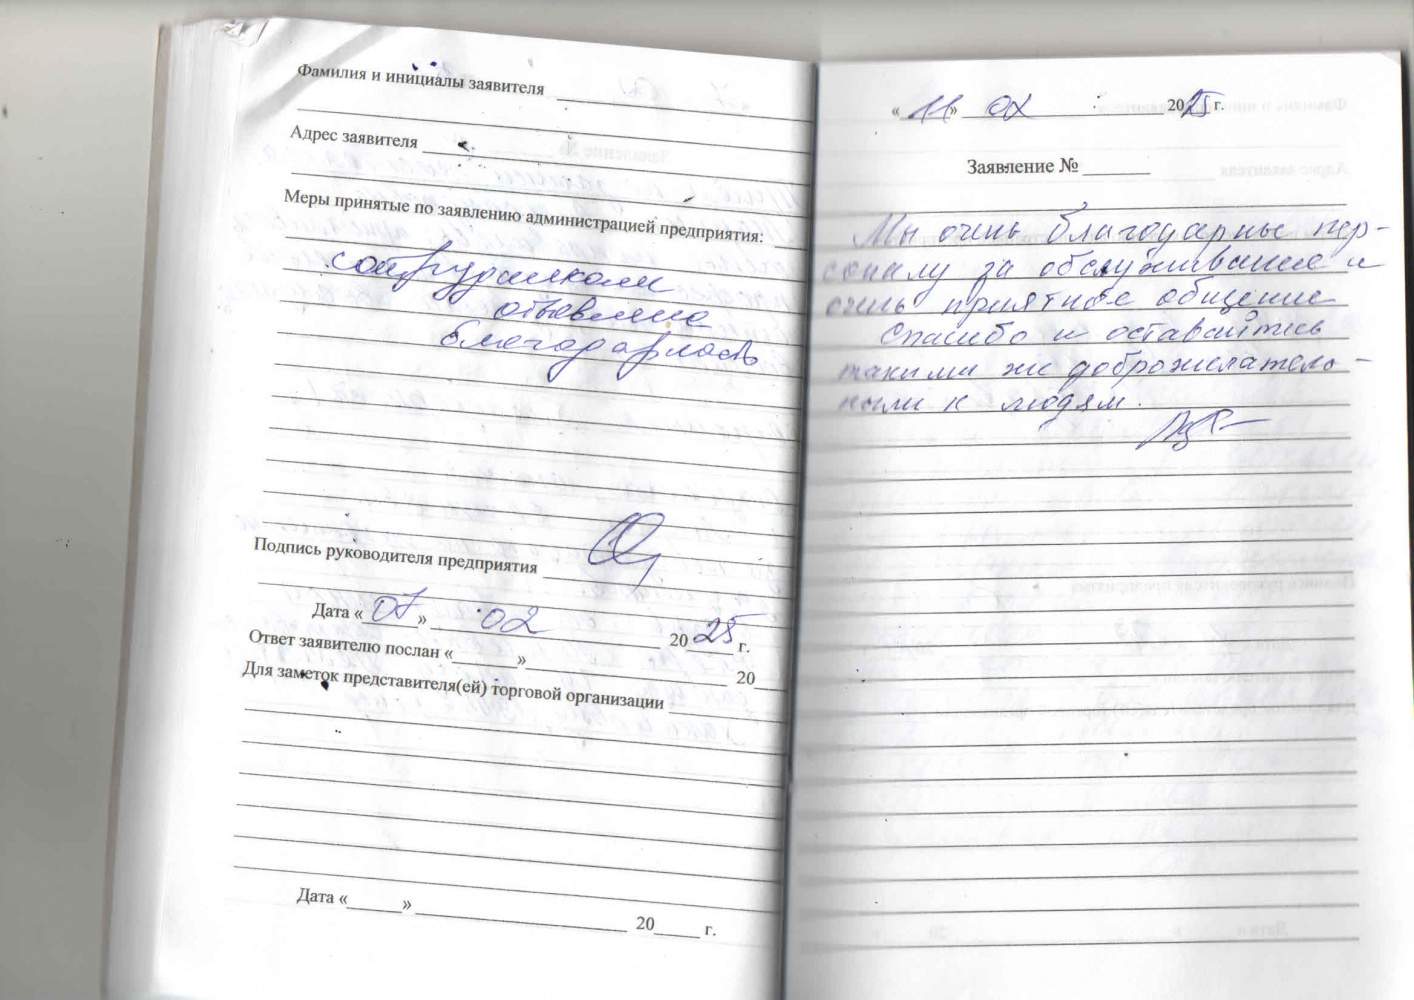 Фамилия и инициалы заявителя
Адрес заявителя
Меры принятые по заявлению администрацией предприятия:
сотрудникам
объявлена
благодарность
Подпись руководителя предприятия
Дата «07» 02 2025 г.
Ответ заявителю послан «______»____________________ 20___
Для заметок представителя(ей) торговой организации
Дата «______»______________________ 20_____ г.
«11» 02 2025 г.
Заявление № _______
Мы очень благодарны пер-
соналу за обслуживание и
очень приятное общение
Спасибо и оставайтесь
такими же доброжелатель-
ными к людям.